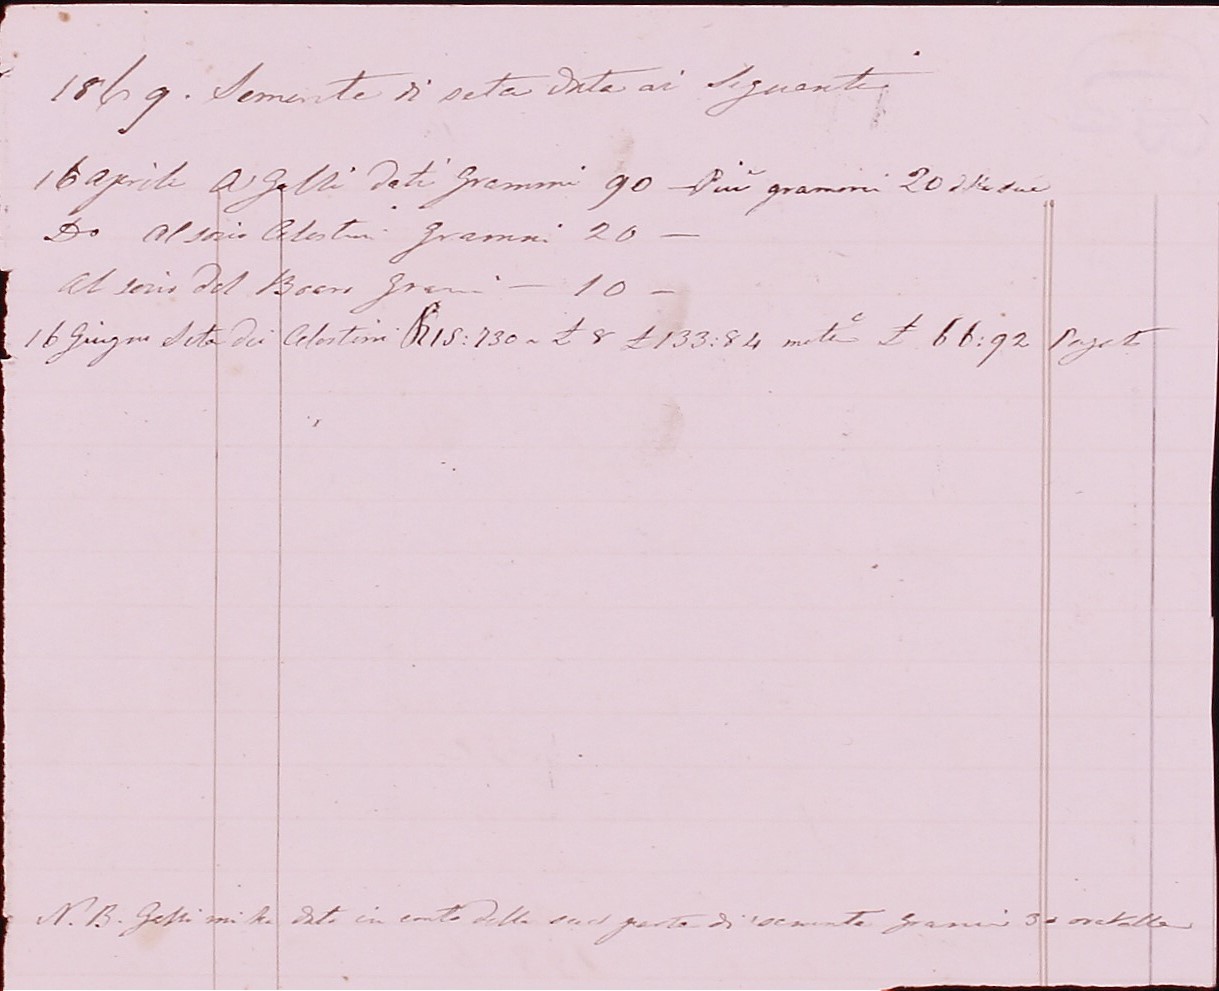 1869. Semente di seta data ai Seguenti
16 aprile A Gessi dati Grammi 90 — Più grammi 20
Do Al socio Celestini Grammi 20 —
Al socio del Boaro Grami — 10 —
16 Giugno Seta dei Celestini 15:730 a £ 8 £ 133:84 metà £ 66:92 Pagato
N.B. Gessi mi ha dato in conto della sua parte di semente Grami 30